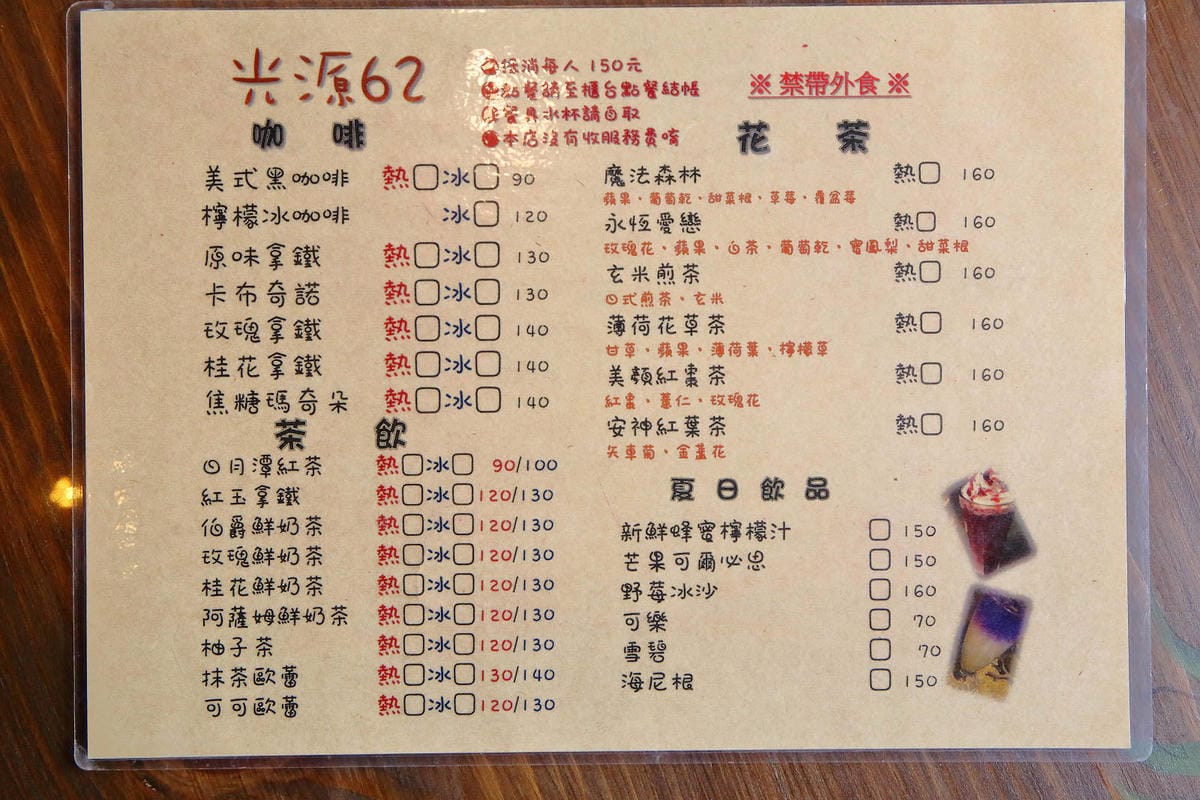 光源62
低消每人 150元
點餐請至櫃台點餐結帳
餐具水杯請自取
本店沒有收服務費唷
※ 禁帶外食 ※
咖 啡
美式黑咖啡 熱 冰 90
檸檬冰咖啡 冰 120
原味拿鐵 熱 冰 130
卡布奇諾 熱 冰 130
玫瑰拿鐵 熱 冰 140
桂花拿鐵 熱 冰 140
焦糖瑪奇朵 熱 冰 140
茶 飲
日月潭紅茶 熱 冰 90/100
紅玉拿鐵 熱 冰 120/130
伯爵鮮奶茶 熱 冰 120/130
玫瑰鮮奶茶 熱 冰 120/130
桂花鮮奶茶 熱 冰 120/130
阿薩姆鮮奶茶 熱 冰 120/130
柚子茶 熱 冰 120/130
抹茶歐蕾 熱 冰 130/140
可可歐蕾 熱 冰 120/130
花 茶
魔法森林 熱 160
蘋果、葡萄乾、甜菜根、草莓、覆盆莓
永恆愛戀 熱 160
玫瑰花、蘋果、白茶、葡萄乾、蜜鳳梨、甜菜根
玄米煎茶 熱 160
日式煎茶、玄米
薄荷花草茶 熱 160
甘草、蘋果、薄荷葉、檸檬草
美顏紅棗茶 熱 160
紅棗、薏仁、玫瑰花
安神紅葉茶 熱 160
矢車菊、金盞花
夏日飲品
新鮮蜂蜜檸檬汁 150
芒果可爾必思 150
野莓冰沙 160
可樂 70
雪碧 70
海尼根 150